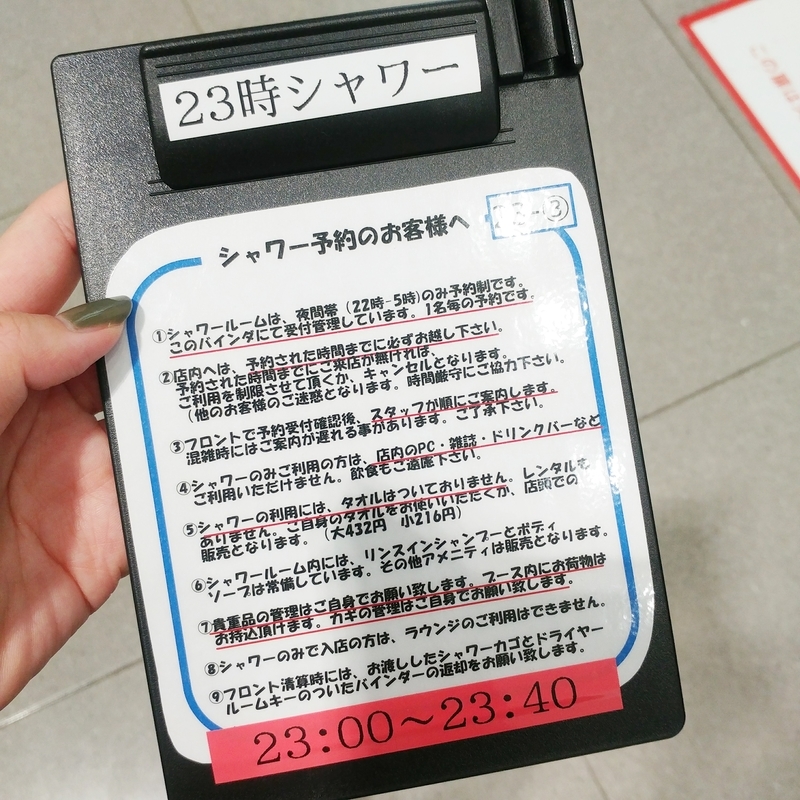 23時シャワー
シャワー予約のお客様へ
23-③
①シャワールームは、夜間帯(22時-5時)のみ予約制です。
このバインダにて受付管理しています。1名毎の予約です。
②店内へは、予約された時間までに必ずお越し下さい。
予約された時間までにご来店が無ければ、
ご利用を制限させて頂くか、キャンセルとなります。
(他のお客様のご迷惑となります。時間厳守にご協力下さい。
③フロントで予約受付確認後、スタッフが順にご案内します。
混雑時にはご案内が遅れる事があります。ご了承下さい。
④シャワーのみご利用の方は、店内のPC・雑誌・ドリンクバーなど
ご利用いただけません。飲食もご遠慮下さい。
⑤シャワーの利用には、タオルはついておりません。レンタルも
ありません。ご自身のタオルをお使いいただくか、店頭での
販売となります。(大432円 小216円)
⑥シャワールーム内には、リンスインシャンプーとボディ
ソープは常備しています。その他アメニティは販売となります。
⑦貴重品の管理はご自身でお願い致します。ブース内にお荷物は
お持込頂けます。カギの管理はご自身でお願い致します。
⑧シャワーのみで入店の方は、ラウンジのご利用はできません。
⑨フロント清算時には、お渡ししたシャワーカゴとドライヤー
ルームキーのついたバインダーの返却をお願い致します。
23:00～23:40